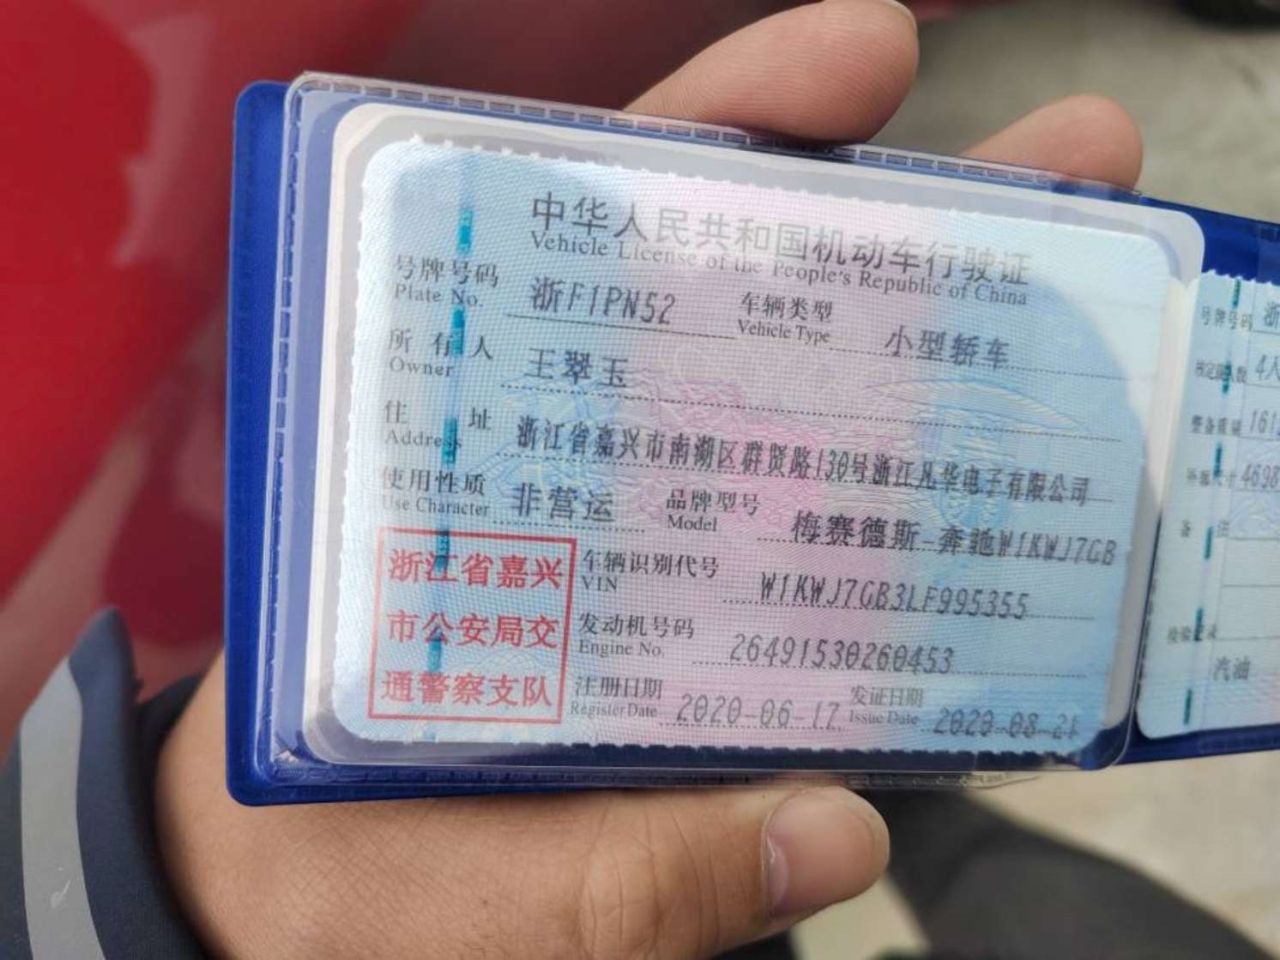 中华人民共和国机动车行驶证
Vehicle License of the People's Republic of China
号牌号码 浙F1PN52 车辆类型 小型轿车
Plate No. Vehicle Type
所有人 王翠玉
Owner
住址 浙江省嘉兴市南湖区群贤路130号浙江凡华电子有限公司
Address
使用性质 非营运 品牌型号 梅赛德斯-奔驰W1KWJ7GB
Use Character Model
浙江省嘉兴
市公安局交
通警察支队
车辆识别代号 W1KWJ7GB3LF995355
VIN
发动机号码 26491530260453
Engine No.
注册日期 2020-06-17 发证日期 2020-08-21
Register Date Issue Date
号牌号码 浙
核定载人数 4人
整备质量 161
外廓尺寸 4698
备注
检验记录
汽油